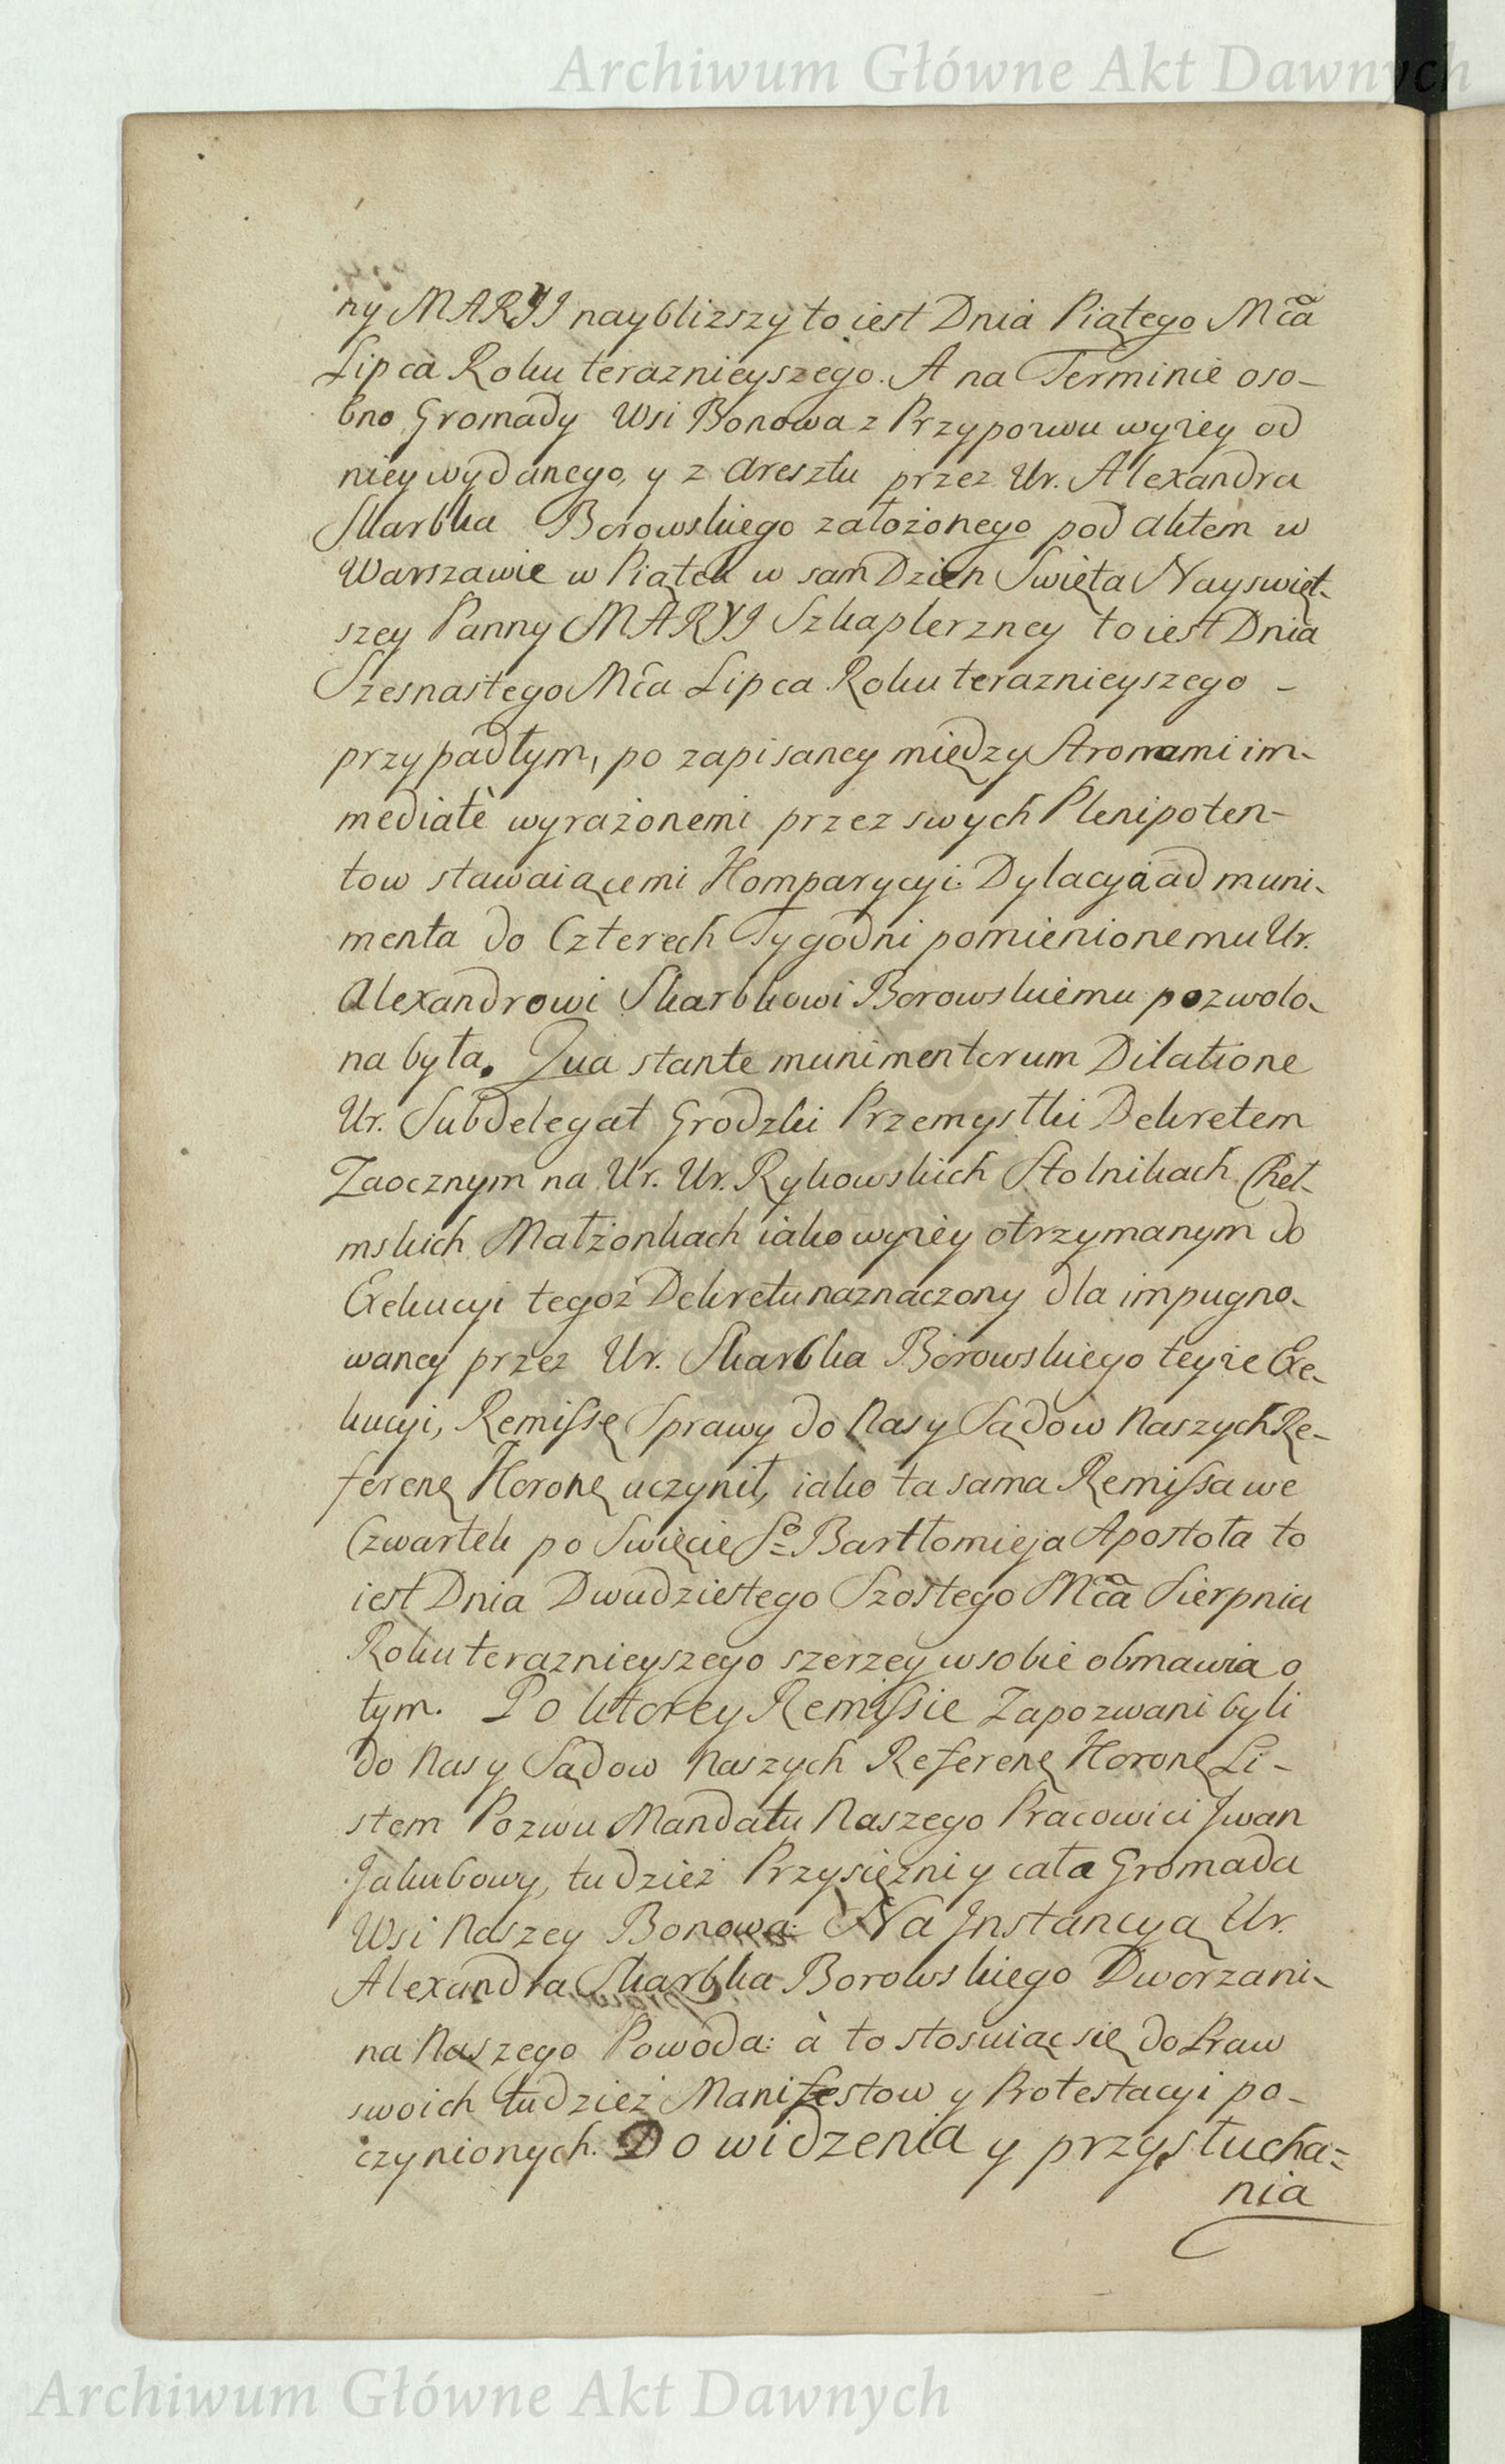 Archiwum Główne Akt Dawnych
ny MARYI nayblizszy to iest Dnia Piątego Mca
Lipca Roku teraznieyszego. A na Terminie oso-
bno Gromady Wsi Bonowa z Przypozwu wyżey od
niey wydanego, y z aresztu przez Ur. Alexandra
Skarbka Borowskiego założonego pod aktem w
Warszawie w Piątek w sam Dzien Swięta Nayswięt-
szey Panny MARYI Szkaplerzney to iest Dnia
Szesnastego Mca Lipca Roku teraznieyszego -
przypadłym, po zapisaney między Stronami im-
mediatè wyrażonemi przez swych Plenipoten-
tow stawaiącemi Komparycyi. Dylacya ad muni-
menta do Czterech Tygodni pomienionemu Ur.
Alexandrowi Skarbkowi Borowskiemu pozwolo-
na była. Qua stante munimentorum Dilatione
Ur. Subdelegat Grodzki Przemyslki Dekretem
Zaocznym na Ur. Ur. Rykowskich Stolnikach Cheł-
mskich Małżonkach iako wyżey otrzymanym do
Exekucyi tegoż Dekretu naznaczony dla impugno-
waney przez Ur. Skarbka Borowskiego teyże Exe-
kucyi, Remissę Sprawy do Nas y Sądow Naszych Re-
feren Koron uczynił, iako ta sama Remissa we
Czwartek po Swięcie So Bartłomieja Apostoła to
iest Dnia Dwudziestego Szostego Mca Sierpnia
Roku teraznieyszego szerzey w sobie obmawia o
tym. Po ktorey Remissie Zapozwani byli
do Nas y Sądow Naszych Referen Koron Li-
stem Pozwu Mandatu Naszego Pracowici Jwan
Jakubowy, tudzież Przysiężni y cała Gromada
Wsi Naszey Bonowa: Na Jnstancyą Ur.
Alexandra Skarbka Borowskiego Dworzani-
na Naszego Powoda: à to stosuiąc się do Praw
swoich tudzież Manifestow y Protestacyi po-
czynionych. Do widzenia y przysłucha=
nia
Archiwum Główne Akt Dawnych